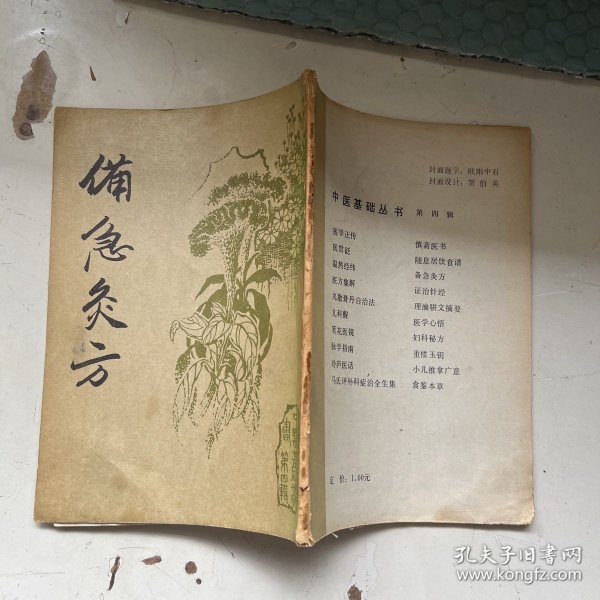 備急灸方
封面题字：欧阳中石
封面设计：贾伯英
中医基础丛书 第四辑
医学正传
医贯砭
温热经纬
医方集解
丸散膏丹自治法
儿科醒
笔花医镜
脉学指南
冷庐医话
马氏评外科症治全生集
慎斋医书
随息居饮食谱
备急灸方
证治针经
理瀹骈文摘要
医学心悟
妇科秘方
重楼玉钥
小儿推拿广意
食鉴本草
定 价：1.00元
孔夫子旧书网
www.kongfz.com